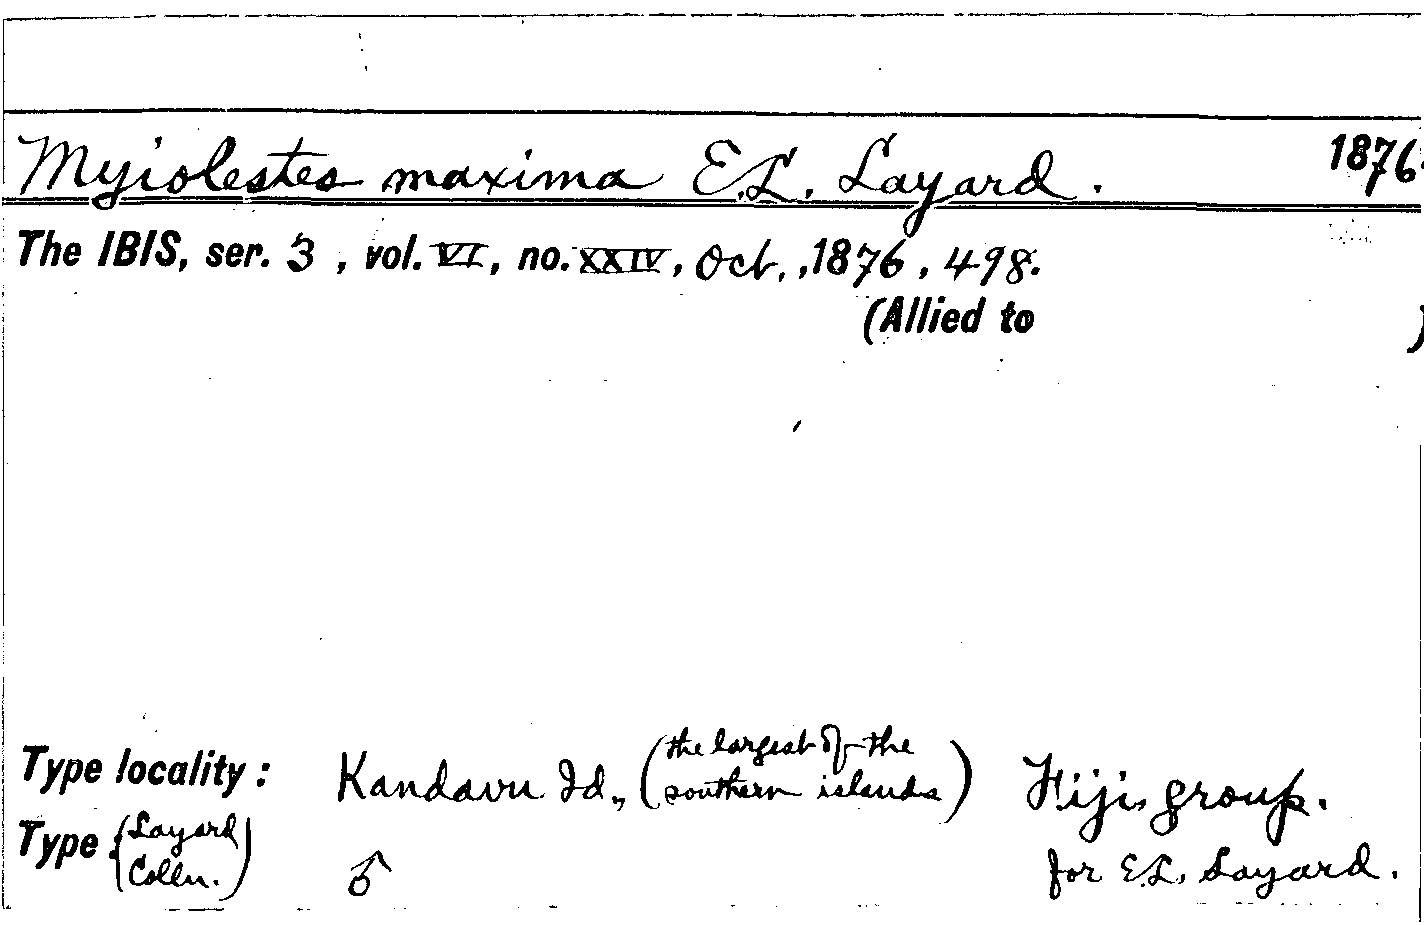 Myiolestes maxima E.L. Layard. 1876.
The IBIS, ser. 3, vol. VI, no. XXIV, Oct., 1876, 498.
(Allied to )
Type locality: Kandavu Id., (the largest of the southern islands) Fiji group.
Type: (Layard Colln.) ♂ for E.L. Layard.